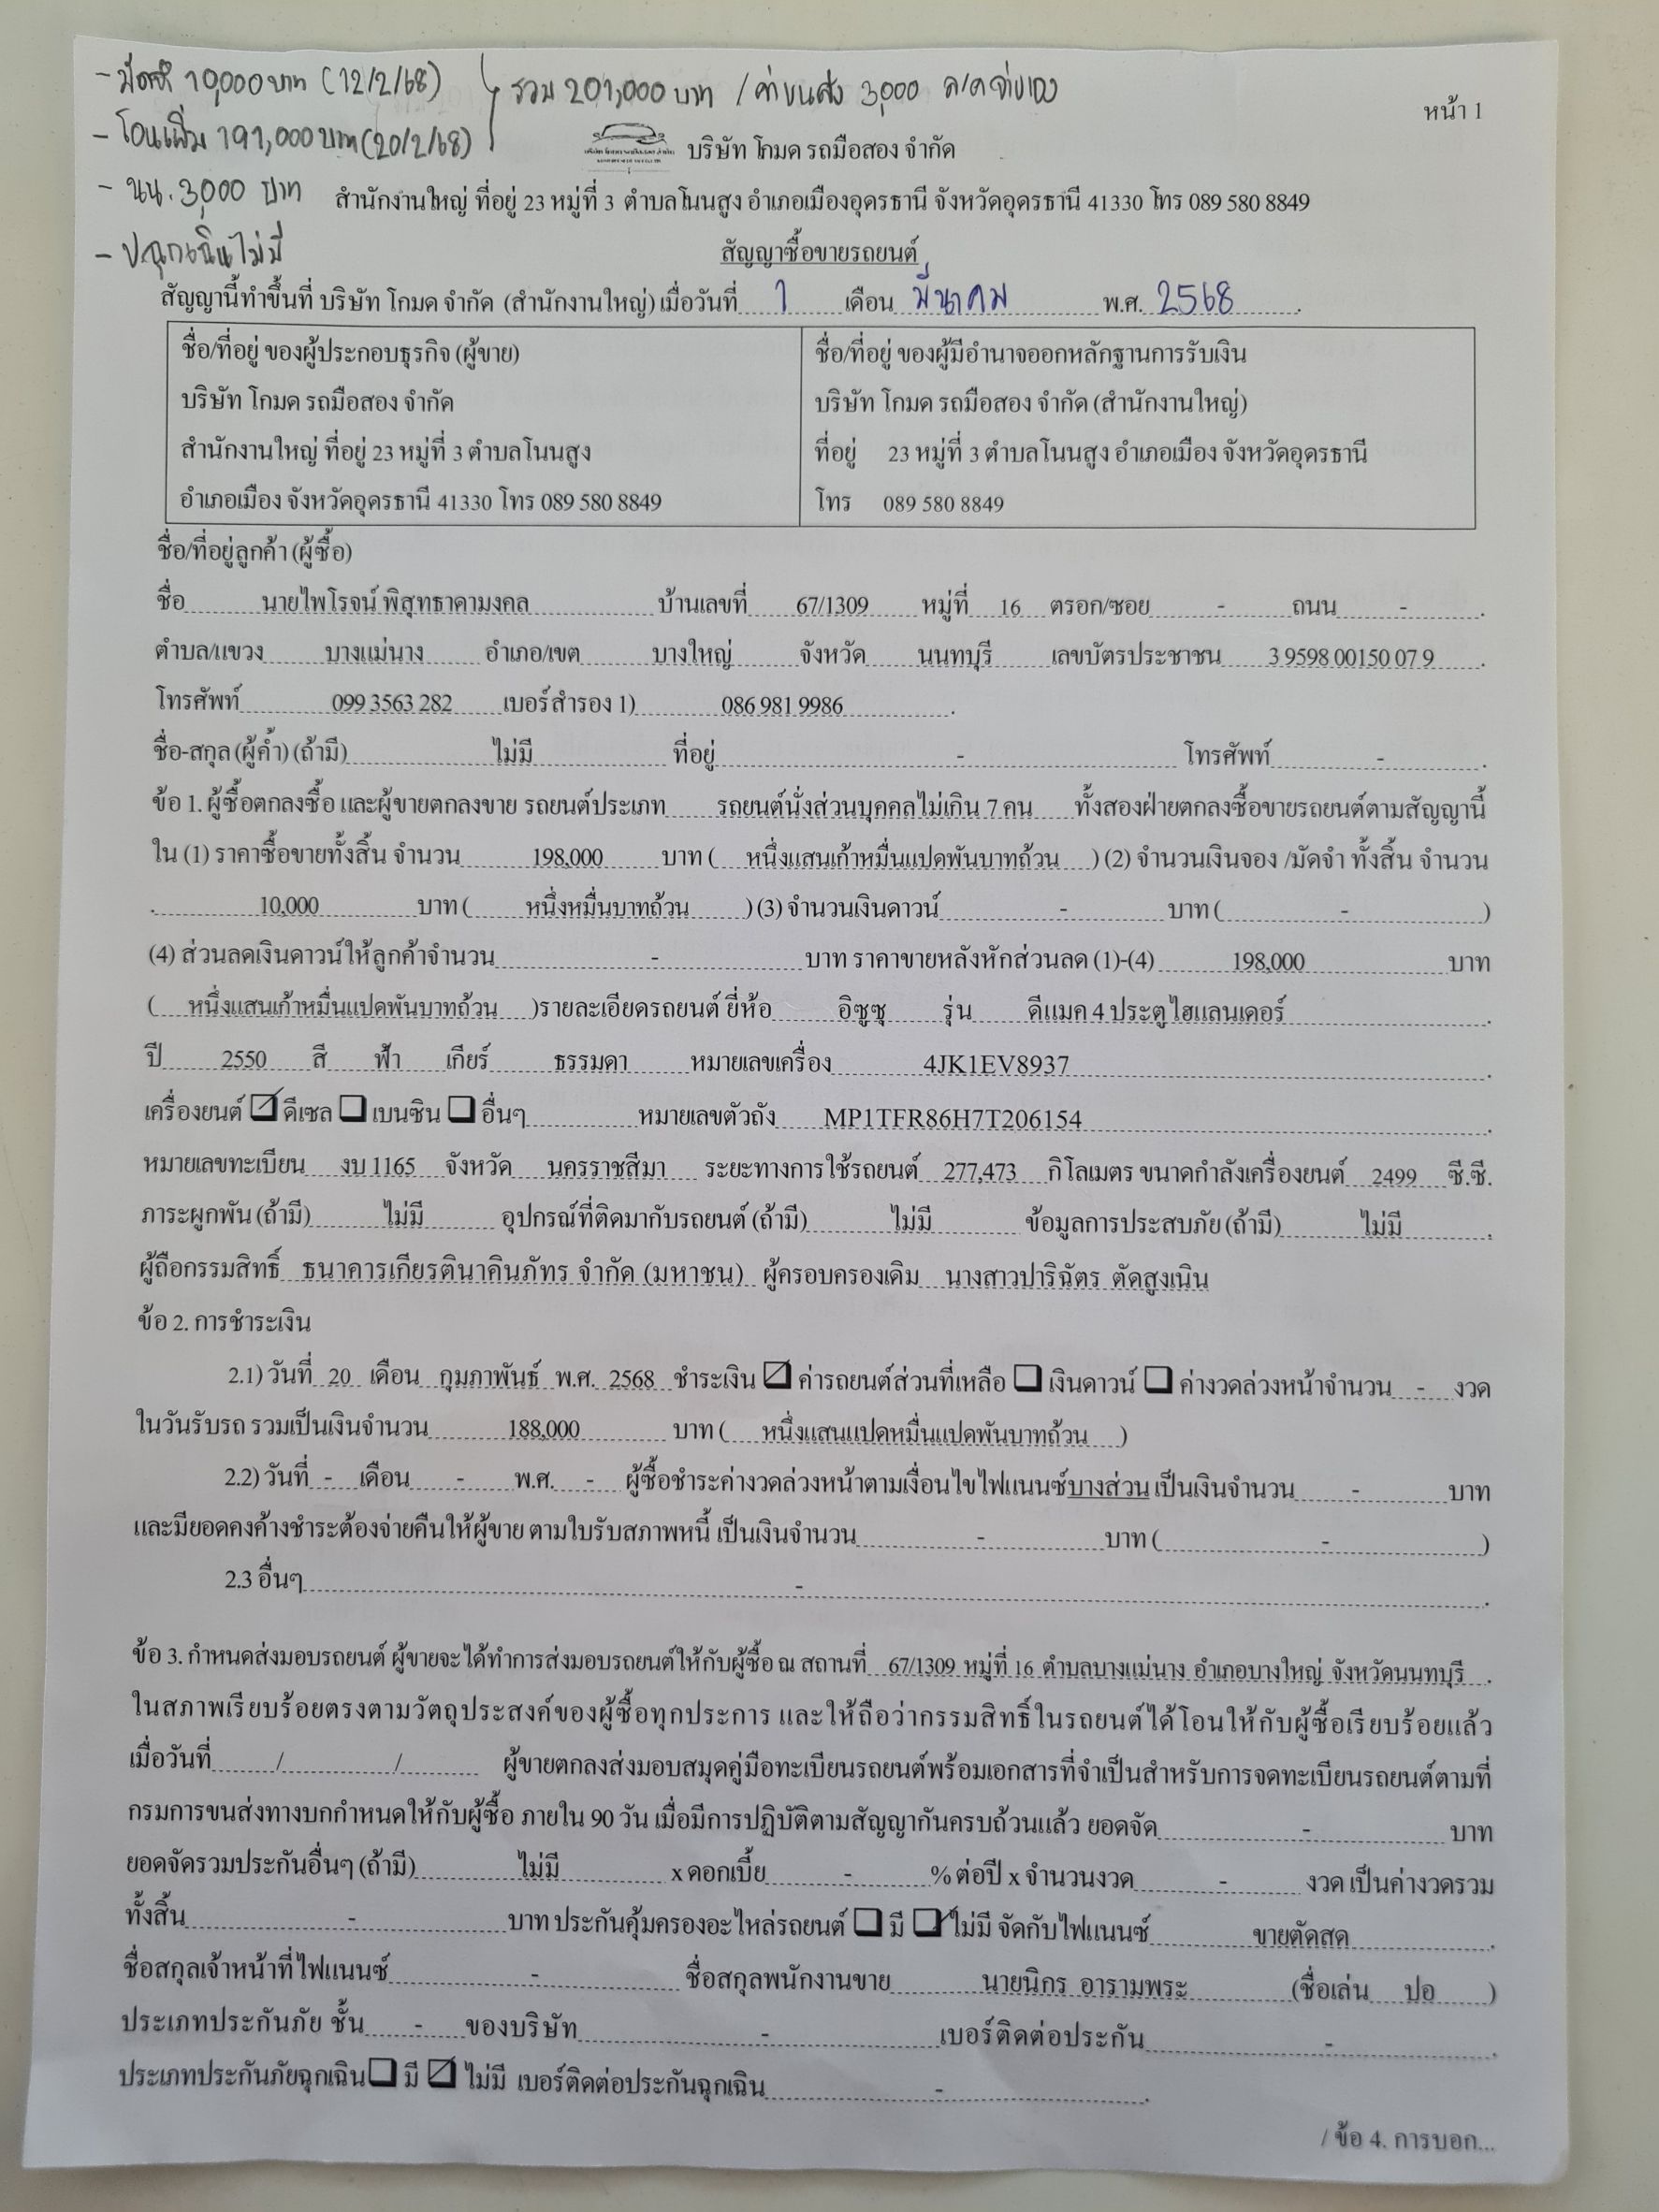 - มัดจำ 10,000 บาท (12/2/68)
- โอนเพิ่ม 191,000 บาท (20/2/68)
รวม 201,000 บาท / ค่าขนส่ง 3,000 ล/ค จ่ายเอง
- นน. 3,000 บาท
- ปฉุกเฉินไม่มี
หน้า 1
บริษัท โกมด รถมือสอง จำกัด
สำนักงานใหญ่ ที่อยู่ 23 หมู่ที่ 3 ตำบลโนนสูง อำเภอเมืองอุดรธานี จังหวัดอุดรธานี 41330 โทร 089 580 8849
สัญญาซื้อขายรถยนต์
สัญญานี้ทำขึ้นที่ บริษัท โกมด จำกัด (สำนักงานใหญ่) เมื่อวันที่ 1 เดือน มีนาคม พ.ศ. 2568
ชื่อ/ที่อยู่ ของผู้ประกอบธุรกิจ (ผู้ขาย)
บริษัท โกมด รถมือสอง จำกัด
สำนักงานใหญ่ ที่อยู่ 23 หมู่ที่ 3 ตำบลโนนสูง
อำเภอเมือง จังหวัดอุดรธานี 41330 โทร 089 580 8849
ชื่อ/ที่อยู่ ของผู้มีอำนาจออกหลักฐานการรับเงิน
บริษัท โกมด รถมือสอง จำกัด (สำนักงานใหญ่)
ที่อยู่ 23 หมู่ที่ 3 ตำบลโนนสูง อำเภอเมือง จังหวัดอุดรธานี
โทร 089 580 8849
ชื่อ/ที่อยู่ลูกค้า (ผู้ซื้อ)
ชื่อ นายไพโรจน์ พิสุทธาคามงคล บ้านเลขที่ 67/1309 หมู่ที่ 16 ตรอก/ซอย - ถนน - .
ตำบล/แขวง บางแม่นาง อำเภอ/เขต บางใหญ่ จังหวัด นนทบุรี เลขบัตรประชาชน 3 9598 00150 07 9 .
โทรศัพท์ 099 3563 282 เบอร์สำรอง 1) 086 981 9986 .
ชื่อ-สกุล (ผู้ค้ำ) (ถ้ามี) ไม่มี ที่อยู่ - โทรศัพท์ - .
ข้อ 1. ผู้ซื้อตกลงซื้อ และผู้ขายตกลงขาย รถยนต์ประเภท รถยนต์นั่งส่วนบุคคลไม่เกิน 7 คน ทั้งสองฝ่ายตกลงซื้อขายรถยนต์ตามสัญญานี้
ใน (1) ราคาซื้อขายทั้งสิ้น จำนวน 198,000 บาท ( หนึ่งแสนเก้าหมื่นแปดพันบาทถ้วน ) (2) จำนวนเงินจอง /มัดจำ ทั้งสิ้น จำนวน
. 10,000 บาท ( หนึ่งหมื่นบาทถ้วน ) (3) จำนวนเงินดาวน์ - บาท ( - )
(4) ส่วนลดเงินดาวน์ให้ลูกค้าจำนวน - บาท ราคาขายหลังหักส่วนลด (1)-(4) 198,000 บาท
( หนึ่งแสนเก้าหมื่นแปดพันบาทถ้วน )รายละเอียดรถยนต์ ยี่ห้อ อิซูซุ รุ่น ดีแมค 4 ประตู ไฮแลนเดอร์ .
ปี 2550 สี ฟ้า เกียร์ ธรรมดา หมายเลขเครื่อง 4JK1EV8937 .
เครื่องยนต์ ☑ ดีเซล ☐ เบนซิน ☐ อื่นๆ หมายเลขตัวถัง MP1TFR86H7T206154 .
หมายเลขทะเบียน งบ 1165 จังหวัด นครราชสีมา ระยะทางการใช้รถยนต์ 277,473 กิโลเมตร ขนาดกำลังเครื่องยนต์ 2499 ซี.ซี.
ภาระผูกพัน (ถ้ามี) ไม่มี อุปกรณ์ที่ติดมากับรถยนต์ (ถ้ามี) ไม่มี ข้อมูลการประสบภัย (ถ้ามี) ไม่มี .
ผู้ถือกรรมสิทธิ์ ธนาคารเกียรตินาคินภัทร จำกัด (มหาชน) ผู้ครอบครองเดิม นางสาวปาริฉัตร ตัดสูงเนิน
ข้อ 2. การชำระเงิน
2.1) วันที่ 20 เดือน กุมภาพันธ์ พ.ศ. 2568 ชำระเงิน ☑ ค่ารถยนต์ส่วนที่เหลือ ☐ เงินดาวน์ ☐ ค่างวดล่วงหน้าจำนวน - งวด
ในวันรับรถ รวมเป็นเงินจำนวน 188,000 บาท ( หนึ่งแสนแปดหมื่นแปดพันบาทถ้วน )
2.2) วันที่ - เดือน - พ.ศ. - ผู้ซื้อชำระค่างวดล่วงหน้าตามเงื่อนไขไฟแนนซ์บางส่วน เป็นเงินจำนวน - บาท
และมียอดคงค้างชำระต้องจ่ายคืนให้ผู้ขาย ตามใบรับสภาพหนี้ เป็นเงินจำนวน - บาท ( - )
2.3 อื่นๆ - .
ข้อ 3. กำหนดส่งมอบรถยนต์ ผู้ขายจะได้ทำการส่งมอบรถยนต์ให้กับผู้ซื้อ ณ สถานที่ 67/1309 หมู่ที่ 16 ตำบลบางแม่นาง อำเภอบางใหญ่ จังหวัดนนทบุรี .
ในสภาพเรียบร้อยตรงตามวัตถุประสงค์ของผู้ซื้อทุกประการ และให้ถือว่ากรรมสิทธิ์ในรถยนต์ได้โอนให้กับผู้ซื้อเรียบร้อยแล้ว
เมื่อวันที่ / / ผู้ขายตกลงส่งมอบสมุดคู่มือทะเบียนรถยนต์พร้อมเอกสารที่จำเป็นสำหรับการจดทะเบียนรถยนต์ตามที่
กรมการขนส่งทางบกกำหนดให้กับผู้ซื้อ ภายใน 90 วัน เมื่อมีการปฏิบัติตามสัญญากันครบถ้วนแล้ว ยอดจัด - บาท
ยอดจัดรวมประกันอื่นๆ (ถ้ามี) ไม่มี x ดอกเบี้ย - % ต่อปี x จำนวนงวด - งวด เป็นค่างวดรวม
ทั้งสิ้น - บาท ประกันคุ้มครองอะไหล่รถยนต์ ☐ มี ☑ ไม่มี จัดกับไฟแนนซ์ ขายตัดสด .
ชื่อสกุลเจ้าหน้าที่ไฟแนนซ์ - ชื่อสกุลพนักงานขาย นายนิกร อารามพระ (ชื่อเล่น ปอ )
ประเภทประกันภัย ชั้น - ของบริษัท - เบอร์ติดต่อประกัน - .
ประเภทประกันภัยฉุกเฉิน ☐ มี ☑ ไม่มี เบอร์ติดต่อประกันฉุกเฉิน - .
/ ข้อ 4. การบอก...